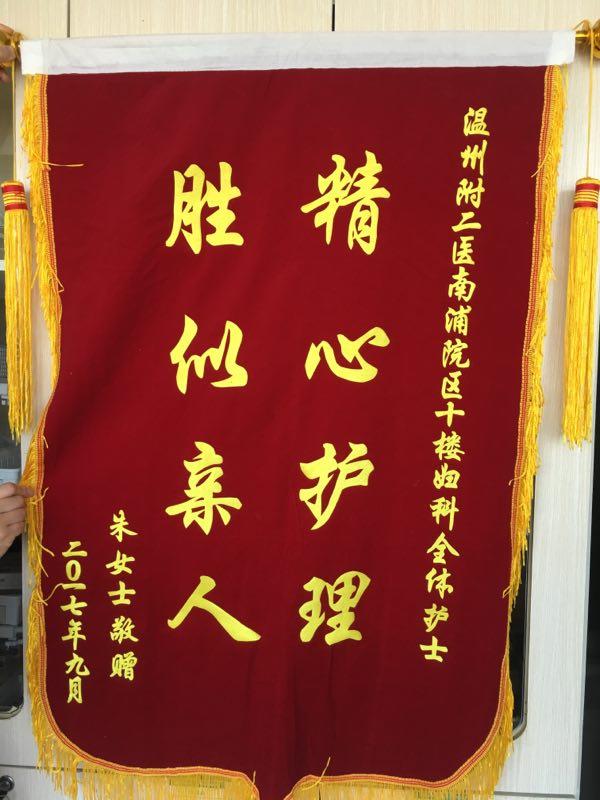 温州附二医南浦院区十楼妇科全体护士
精心护理
胜似亲人
朱女士敬赠
二〇一七年九月